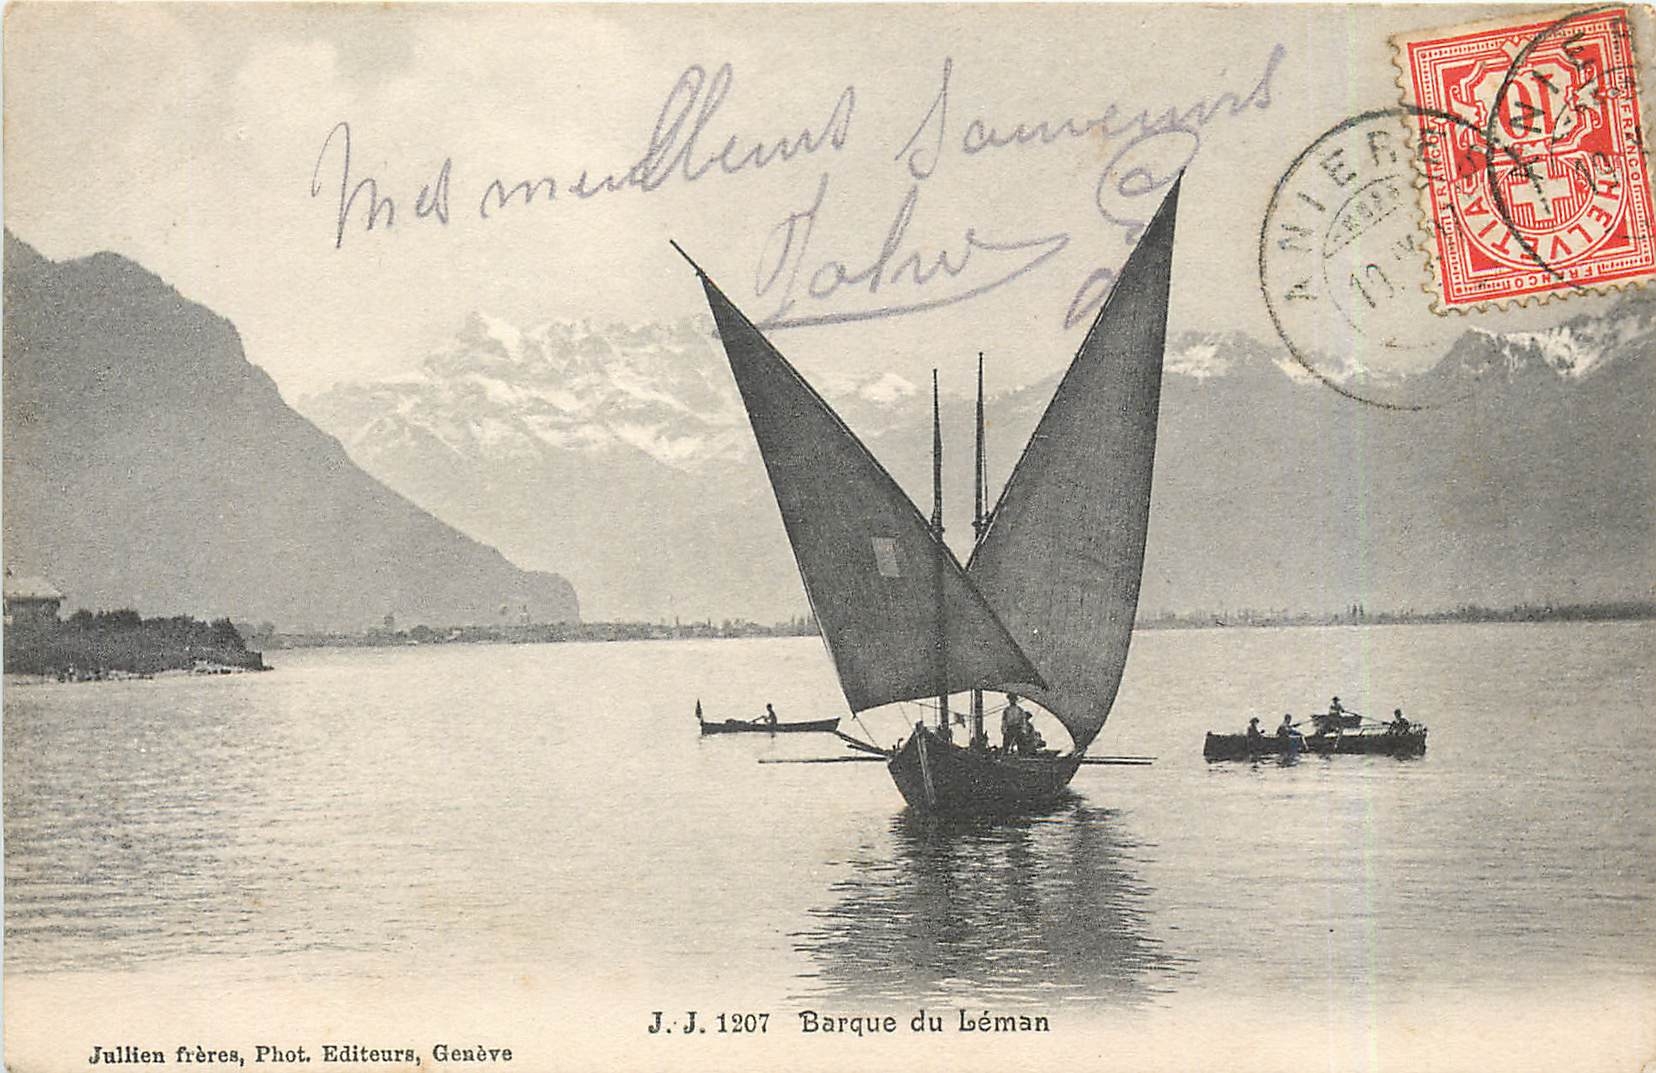 Mes meilleurs souvenirs
ANIERES
10. IX.
10
FRANCO
HELVETIA
FRANCO
J. J. 1207 Barque du Léman
Jullien frères, Phot. Editeurs, Genève